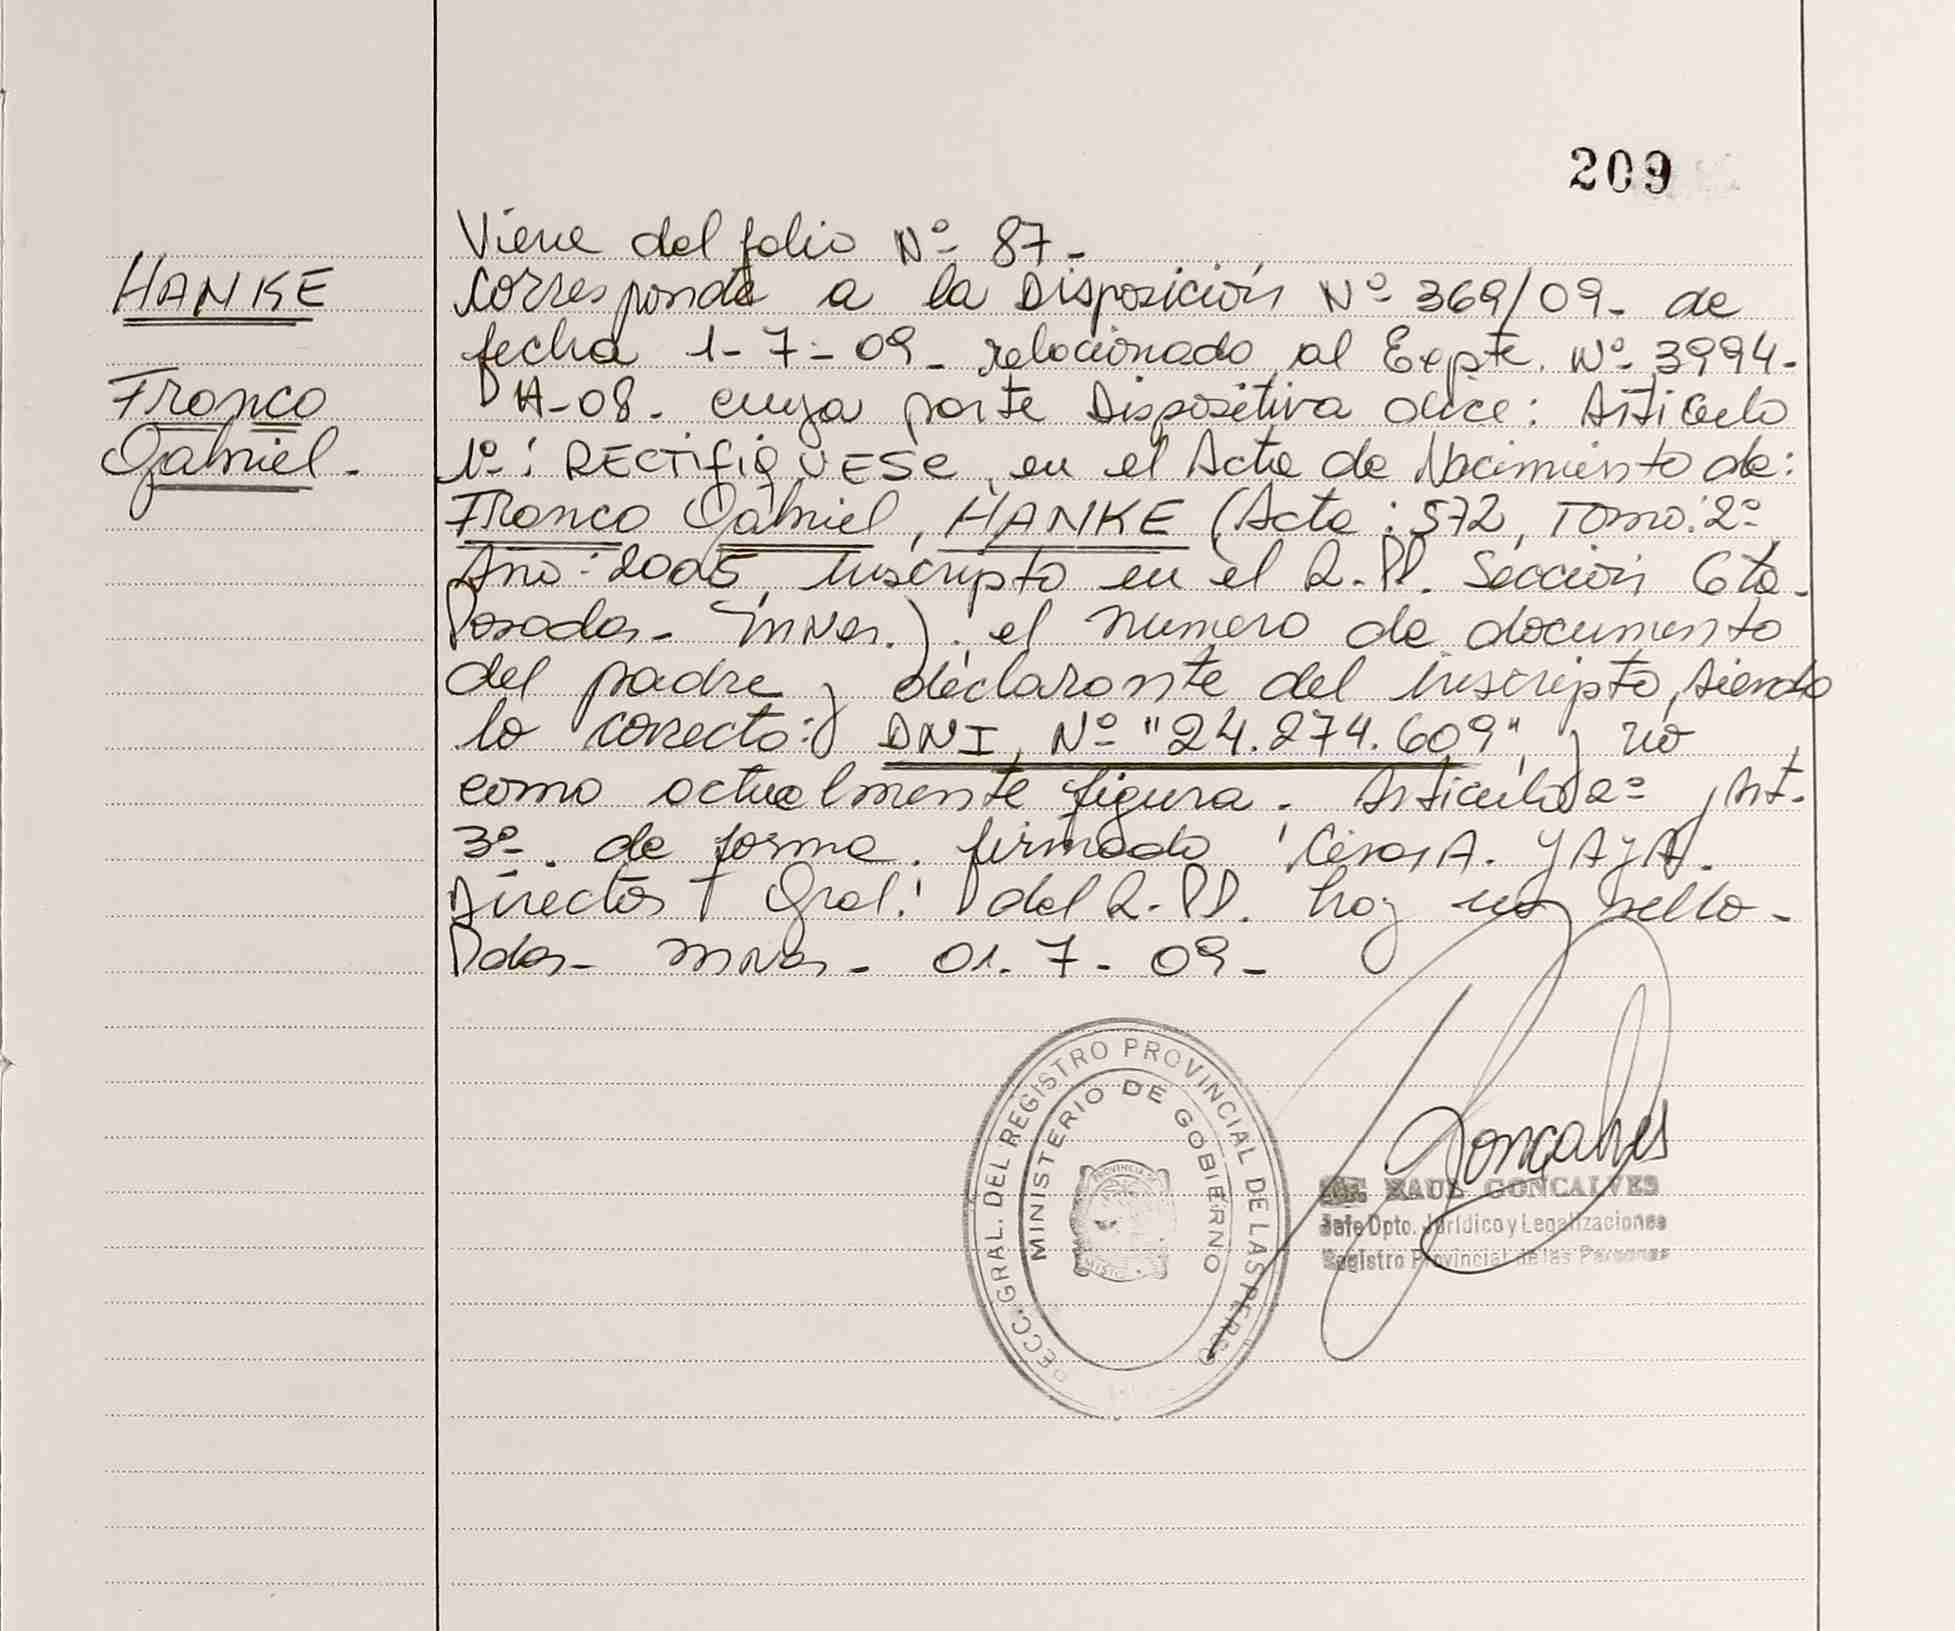 209
HANKE
Franco
Gabriel.-
Viene del folio Nº 87-
Corresponde a la Disposición Nº 369/09- de
fecha 1-7-09- relacionado al Expte. Nº 3994-
H-08- cuya parte Dispositiva dice: Articulo
1º: RECTIFIQUESE en el Acta de Nacimiento de:
Franco Gabriel, HANKE (Acta: 572, Tomo: 2º
Año: 2005, Inscripto en el R.PP. Sección 6ta-
Posadas- Mnes.). el numero de documento
del padre y declarante del inscripto, siendo
lo correcto: DNI, Nº "24.274.609", y no
como actualmente figura. Articulo 2º y Art.
3º. de forma. firmado: Cesar A. YAYA.
Director Gral. del R.PP. hay un sello-
Pdas- Mnes- 01.7-09-
DIRECC. GRAL. DEL REGISTRO PROVINCIAL DE LAS PERSO
MINISTERIO DE GOBIERNO
PROVINCIA
Gonçalves
RAUL GONCALVES
Jefe Dpto. Jurídico y Legalizaciones
Registro Provincial de las Personas